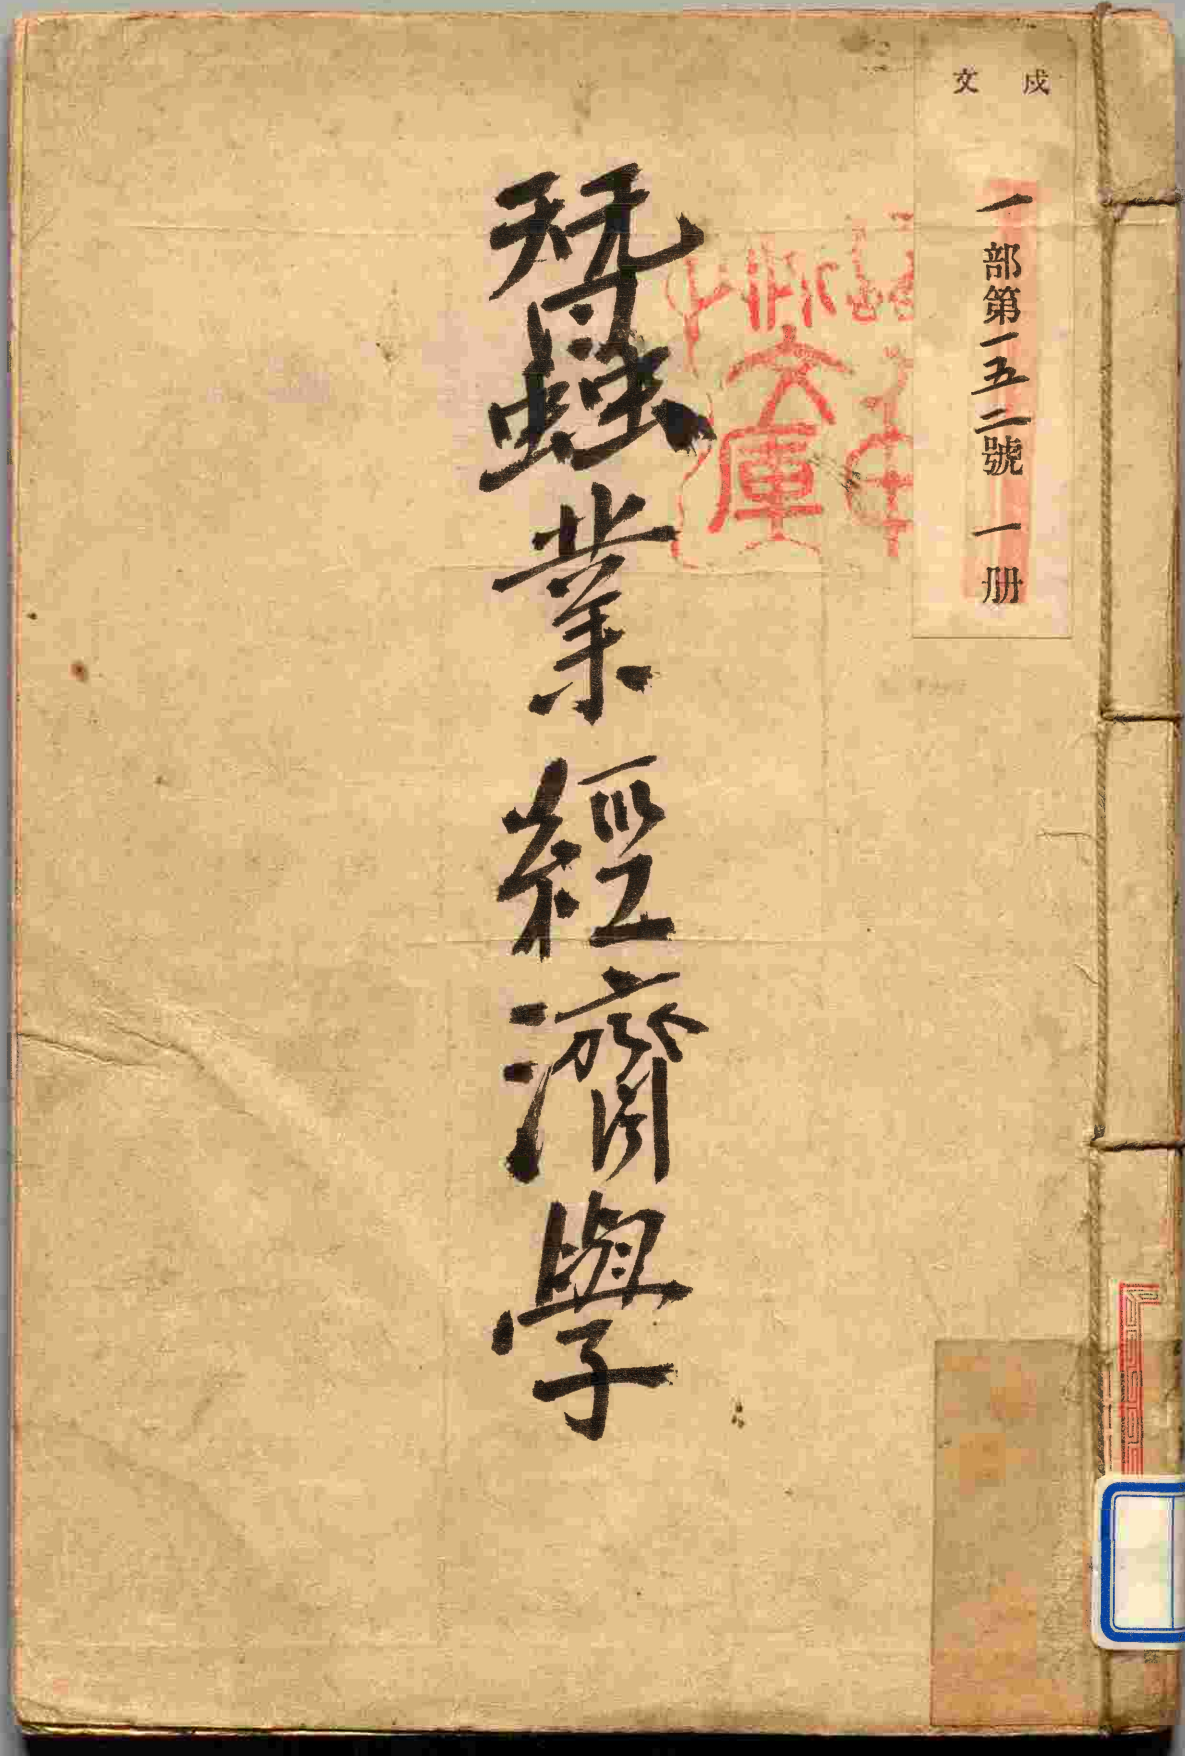 文 戍
一部第一五二號 一册
文庫
蠶業經濟學